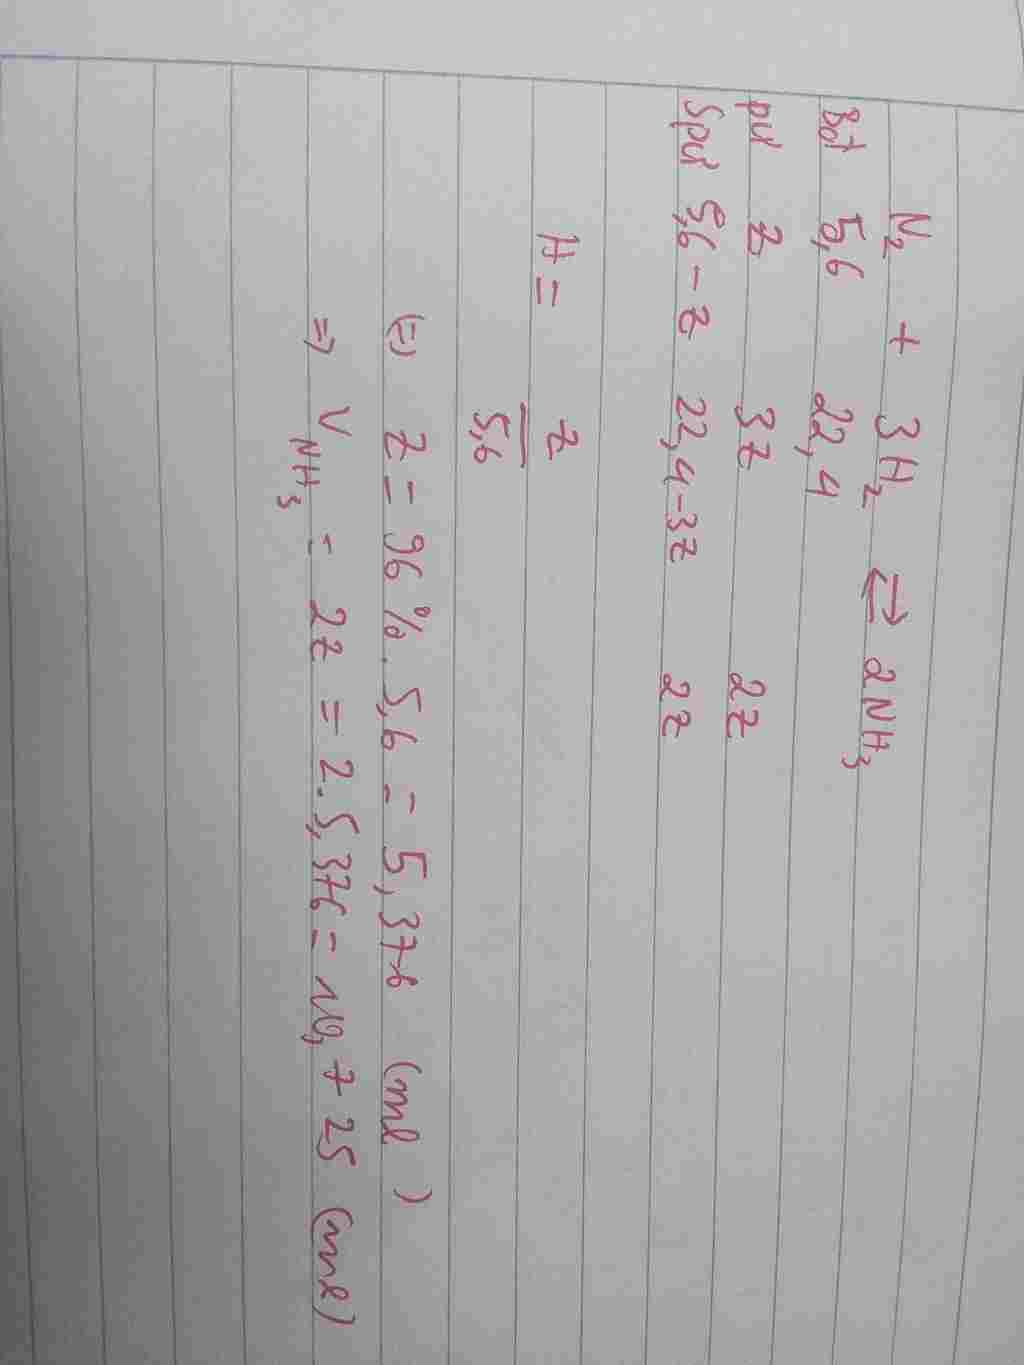 N₂ + 3H₂ ⇌ 2NH₃
Bđ 5,6 22,4
pư z 3z 2z
Spư 5,6-z 22,4-3z 2z
H = z/5,6
(=) z = 96%. 5,6 = 5,376 (ml)
=> V NH₃ = 2z = 2.5,376 = 10,725 (ml)